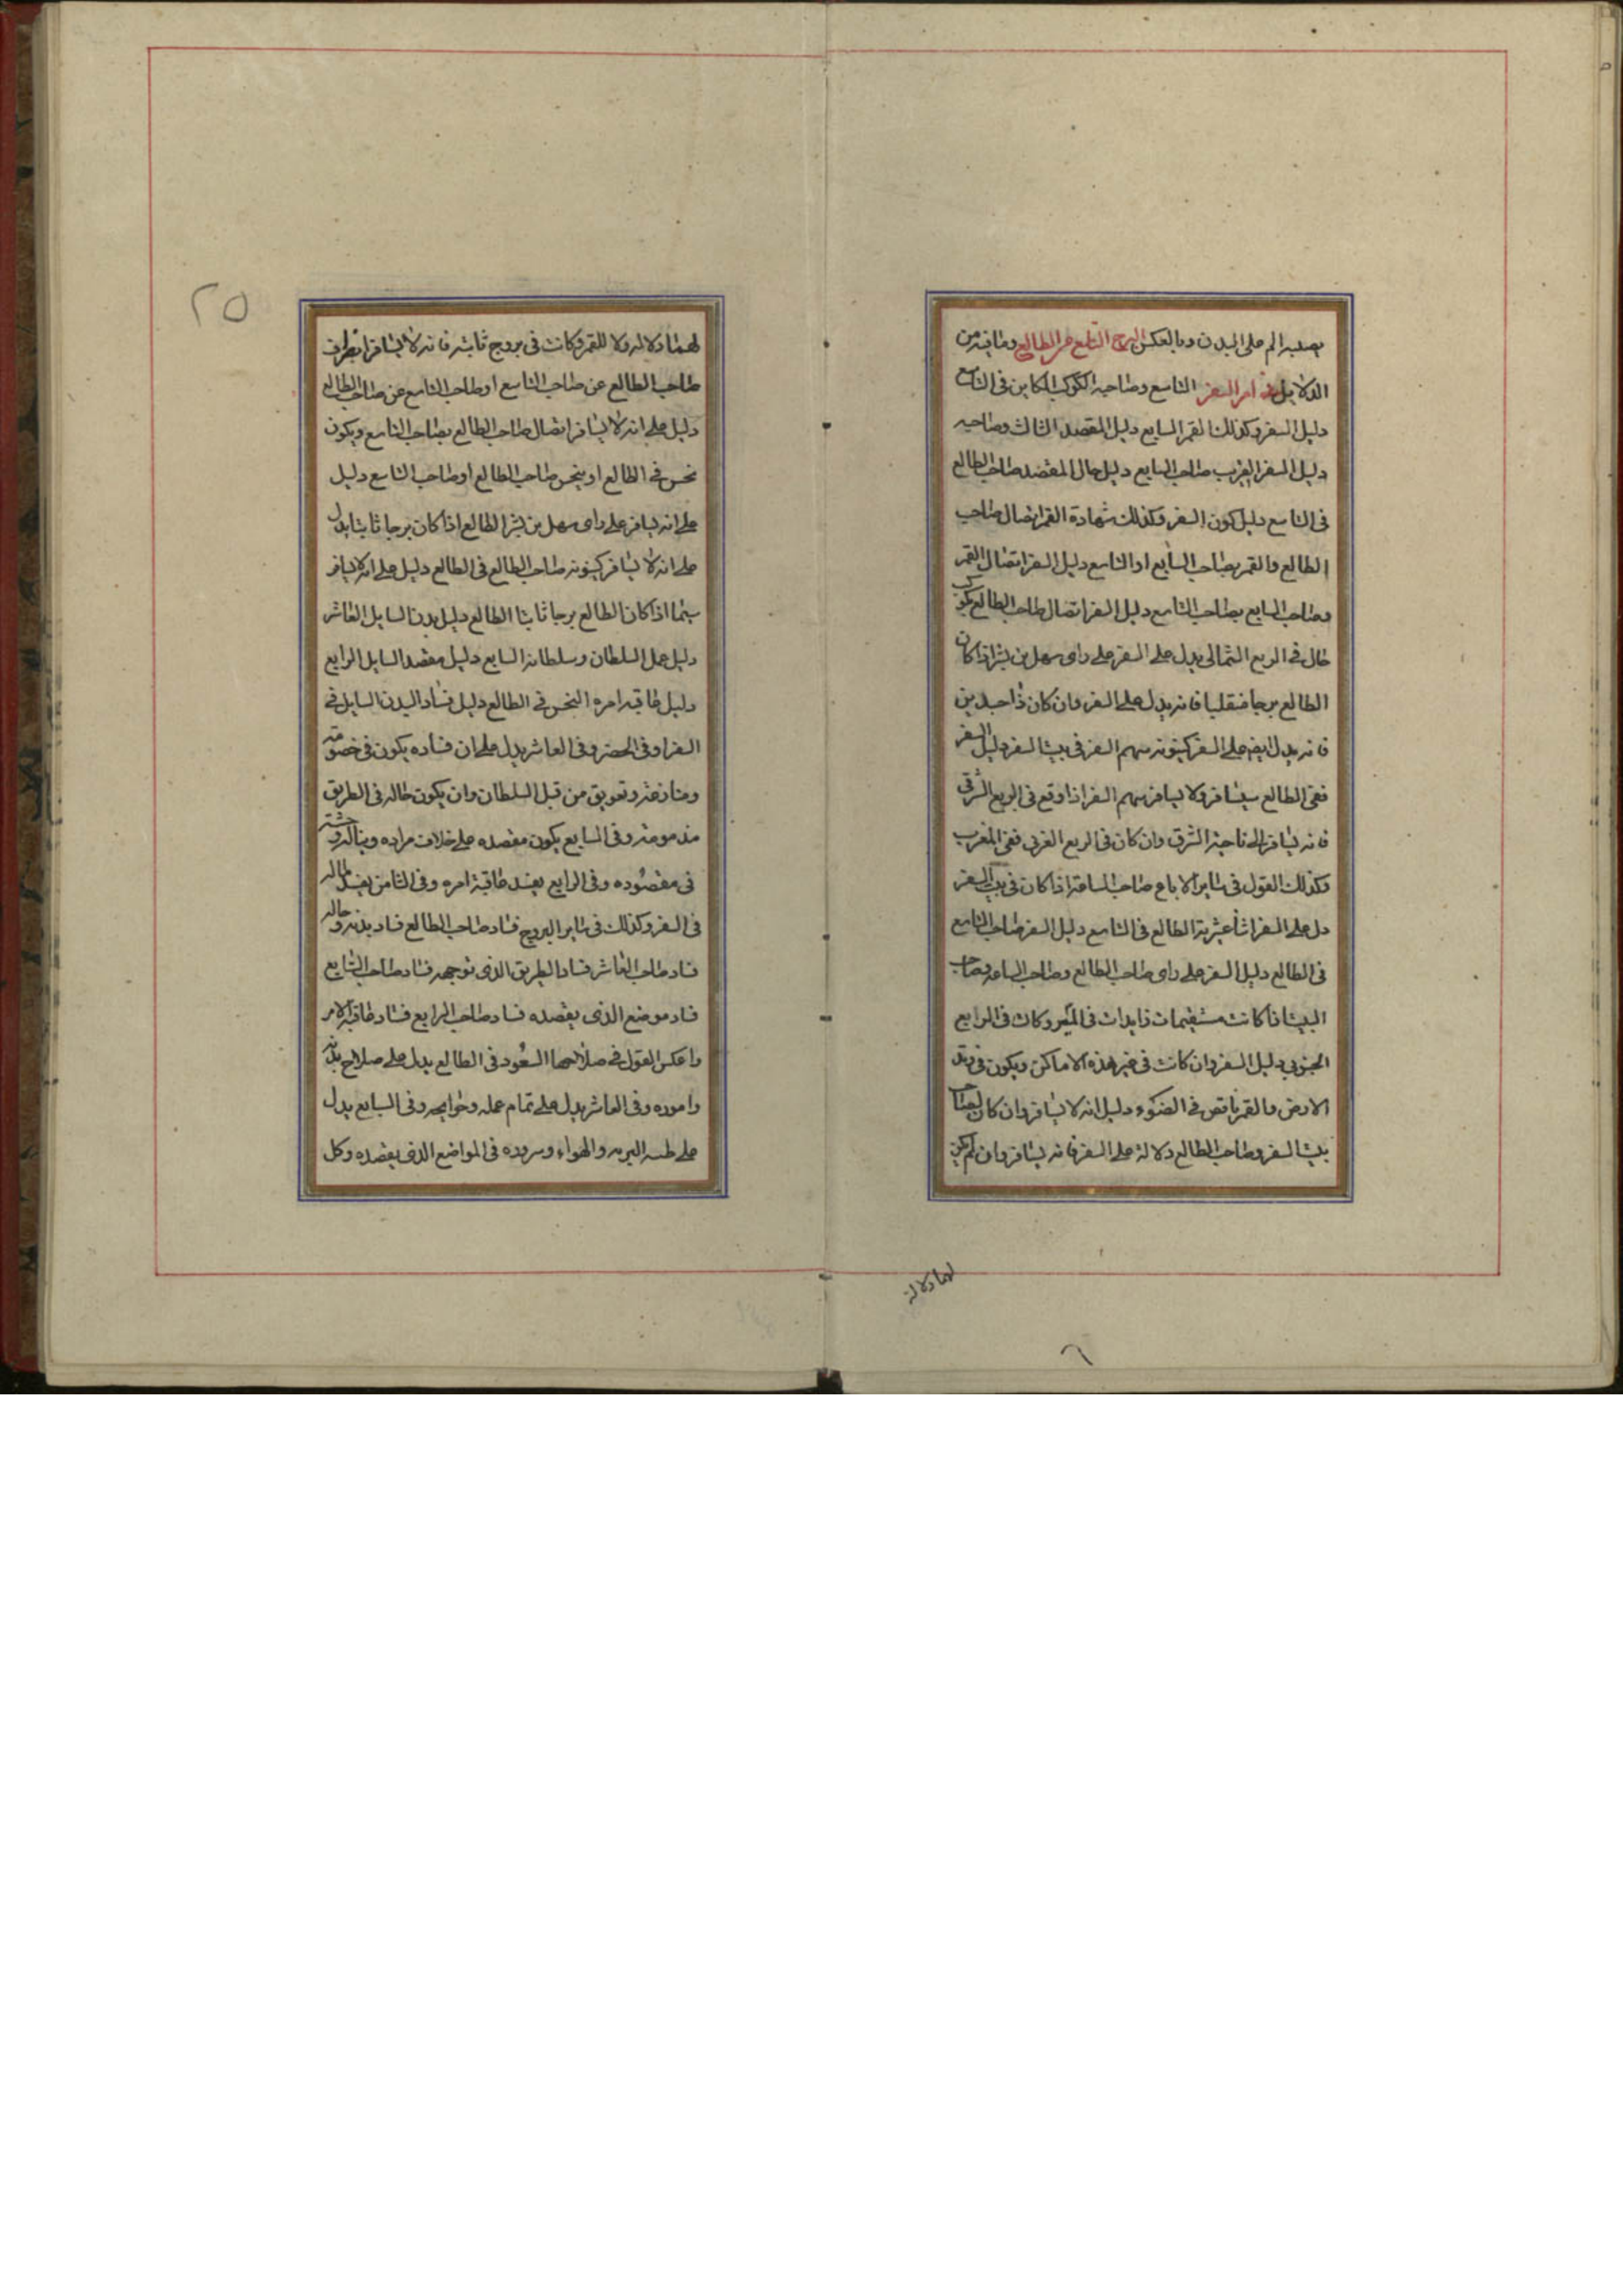 يصيبه الم على البدن وبالعكس البرج التاسع من الطالع وما فيه من
الدلايل امر السفر التاسع وصاحبه الكوكب الكاين فى التاسع
دليل السفر وكذلك القمر السابع دليل المقصد الثالث وصاحبه
دليل السفر القريب صاحب السابع دليل حال المقصد صاحب الطالع
فى التاسع دليل كون السفر وكذلك شهادة القمر اتصال صاحب
الطالع والقمر بصاحب السابع او التاسع دليل السفر اتصال القمر
وصاحب السابع بصاحب التاسع دليل السفر اتصال صاحب الطالع بكوكب
خال فى الربع الشمالى يدل على السفر على راى سهل بن بشر اذا كان
الطالع برجا منقلبا فانه يدل على السفر وان كان ذا جسدين
فانه يدل ايضا على السفر كينونه سهم السفر فى بيت السفر دليل السفر
ففى الطالع سيسافر ولا يسافر سهم السفر اذا وقع فى الربع الشرقى
فانه يسافر الى ناحية الشرق وان كان فى الربع الغربى ففى المغرب
وكذلك القول فى ساير الارباع صاحب الساعة اذا كان فى بيت السفر
دل على السفر اثنا عشرية الطالع فى التاسع دليل السفر صاحب التاسع
فى الطالع دليل السفر على راى صاحب الطالع وصاحب الساعه وصاحب
البيت اذا كانت مستقيمات زايدات فى السير وكان فى الرابع
الجنوبى دليل السفر وان كانت فى غير هذه الاماكن ويكون فى وتد
الارض والقمر ناقص فى الضوء دليل انه لا يسافر وان كان لصاحب
بيت السفر وصاحب الطالع دلالة على السفر فانه يسافر وان لم يكن
لهما دلالة
لهما دلاله ولا للقمر وكانت فى بروج ثابته فانه لا يسافر انصراف
صاحب الطالع عن صاحب التاسع او صاحب التاسع عن صاحب الطالع
دليل على انه لا يسافر اتصال صاحب الطالع بصاحب التاسع ويكون
نحس فى الطالع او ينحس صاحب الطالع او صاحب التاسع دليل
على انه يسافر على راى سهل بن بشر الطالع اذا كان برجا ثابتا يدل
على انه لا يسافر كينونه صاحب الطالع فى الطالع دليل على انه لا يسافر
سيما اذا كان الطالع برجا ثابتا الطالع دليل بدن السايل العاشر
دليل عمل السلطان وسلطانه السابع دليل مقصد السايل الرابع
دليل عاقبه امره النحس فى الطالع دليل فساد البدن السايل فى
السفر او فى الحضر وفى العاشر يدل على ان فساده يكون فى خصومة
ومنازعة وتعويق من قبل السلطان وان يكون حاله فى الطريق
مذمومة وفى السابع يكون مقصده على خلاف مراده
فى مقصوده وفى الرابع يفسد عاقبة امره وفى الثامن يفسد ماله
فى السفر وكذلك فى ساير البروج فساد صاحب الطالع فساد بدنه وحاله
فساد صاحب العاشر فساد الطريق الذى توجهه فساد صاحب السابع
فساد موضع الذى يقصده فساد صاحب الرابع فساد عاقبة الامر
واعكس القول فى صلاحها السعود فى الطالع يدل على صلاح بدنه
واموره وفى العاشر يدل على تمام عمله وحوايجه وفى السابع يدل
على والهواء وسروره فى المواضع الذى يقصده وكل
٢٥